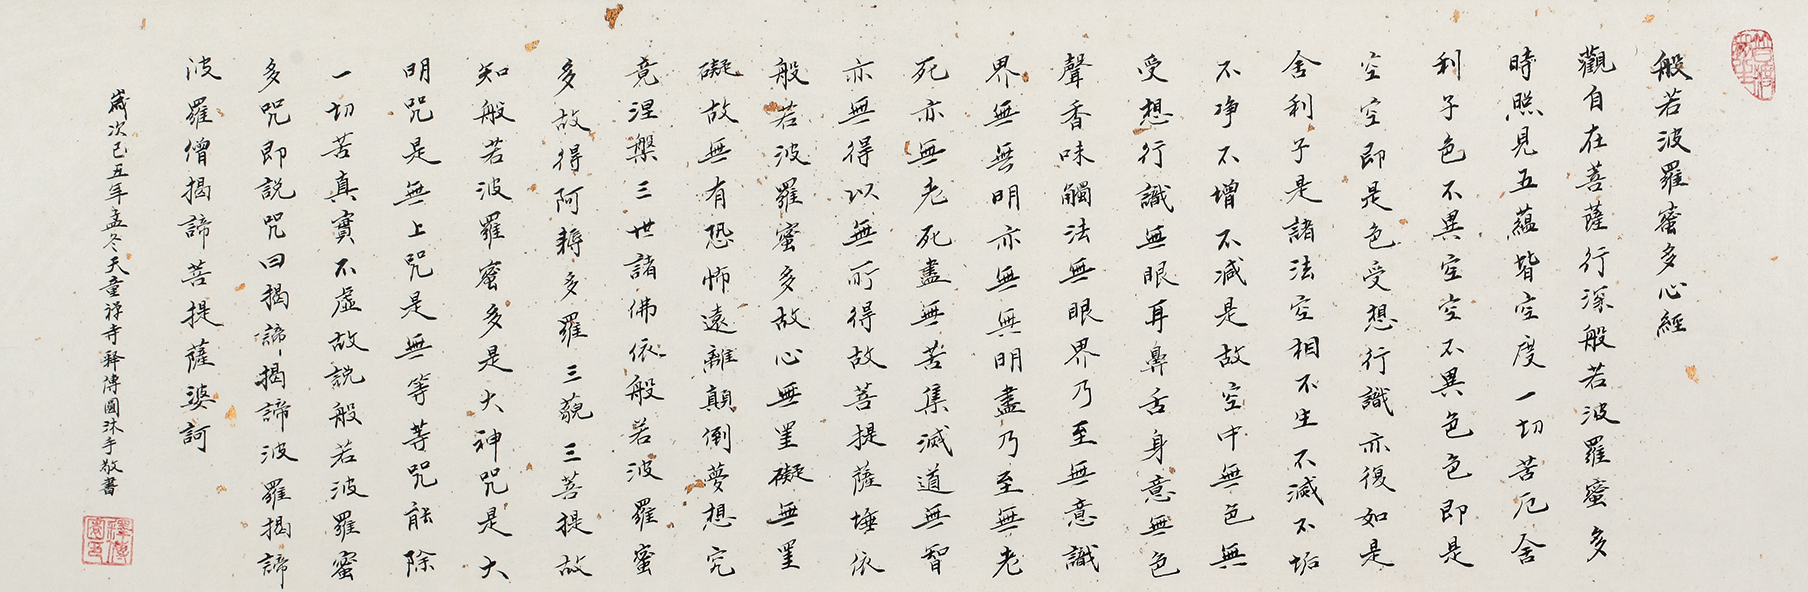 般若波羅蜜多心經
觀自在菩薩行深般若波羅蜜多
時照見五蘊皆空度一切苦厄舍
利子色不異空空不異色色即是
空空即是色受想行識亦復如是
舍利子是諸法空相不生不滅不垢
不净不增不减是故空中無色無
受想行識無眼耳鼻舌身意無色
聲香味觸法無眼界乃至無意識
界無無明亦無無明盡乃至無老
死亦無老死盡無苦集滅道無智
亦無得以無所得故菩提薩埵依
般若波羅蜜多故心無罣礙無罣
礙故無有恐怖遠離顛倒夢想究
竟涅槃三世諸佛依般若波羅蜜
多故得阿耨多羅三藐三菩提故
知般若波羅蜜多是大神咒是大
明咒是無上咒是無等等咒能除
一切苦真實不虛故說般若波羅蜜
多咒即說咒曰揭諦揭諦波羅揭諦
波羅僧揭諦菩提薩婆訶
歲次己丑年孟冬天童禪寺釋傳圓沐手敬書